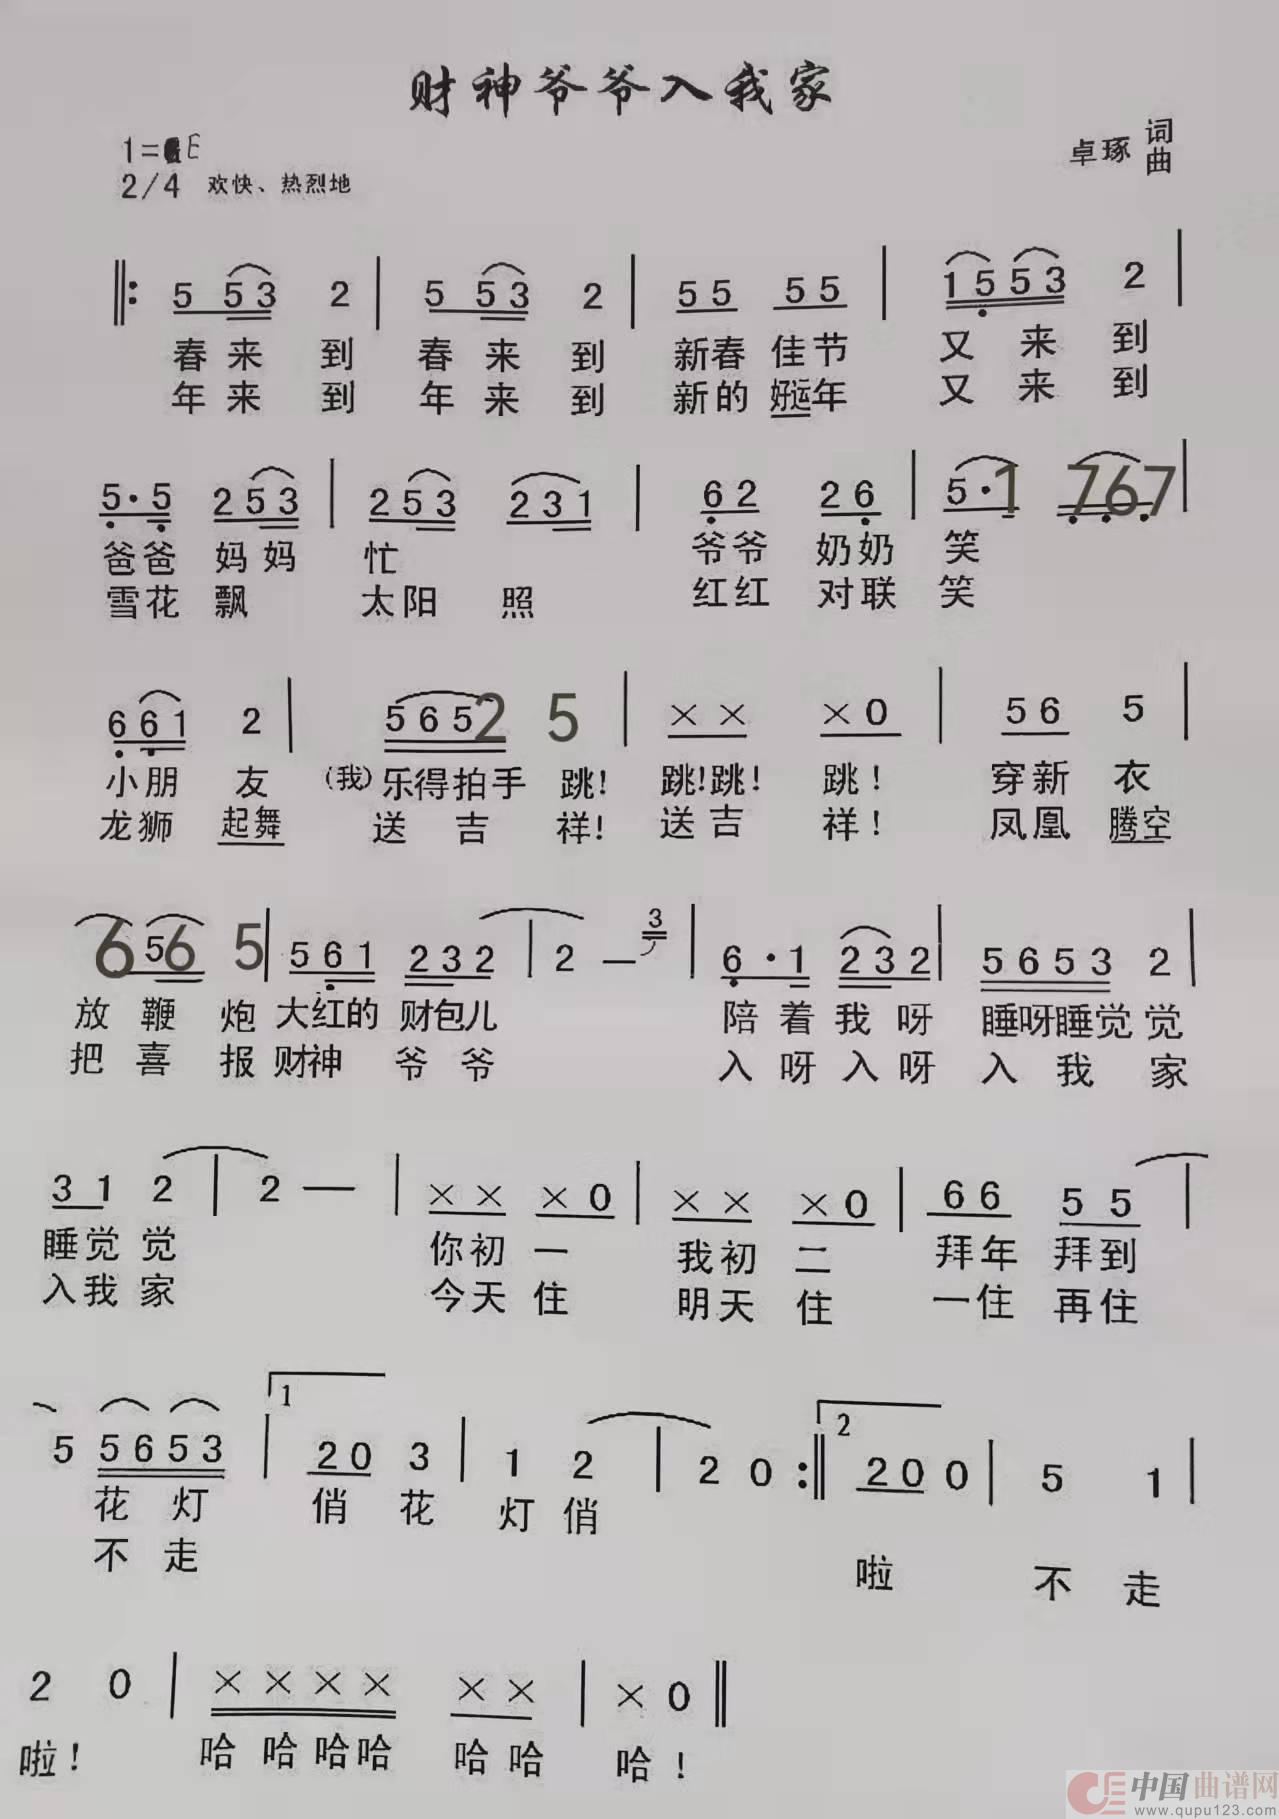 财神爷爷入我家
1=E
卓琢 词
曲
2/4 欢快、热烈地
‖: 5 53 2 | 5 53 2 | 55 55 | 1553 2 |
春来到 春来到 新春佳节 又来到
年来到 年来到 新的好运年 又来到
5·5 253 | 253 231 | 62 26 | 5·1 767 |
爸爸妈妈 忙 爷爷 奶奶 笑
雪花飘 太阳照 红红 对联 笑
661 2 | 56525 | ×× ×0 | 56 5 |
小朋友 (我)乐得拍手跳! 跳!跳!跳! 穿新衣
龙狮起舞 送吉祥! 送吉祥! 凤凰腾空
656 5 | 561 232 | 2 — 3 | 6·1 232 | 5653 2 |
放鞭炮 大红的财包儿 陪着我呀 睡呀睡觉觉
把喜报 财神爷爷 入呀入呀 入我家
31 2 | 2 — | ×× ×0 | ×× ×0 | 66 55 |
睡觉觉 你初一 我初二 拜年拜到
入我家 今天住 明天住 一住再住
5 5653 | 1 20 3 | 1 2 | 2 0 :‖ 2 20 0 | 5 1 |
花灯 俏花灯俏
不走 啦 不走
2 0 | ×××× ×× | ×0 ‖
啦! 哈哈哈哈 哈哈 哈!
中国曲谱网
www.qupu123.com